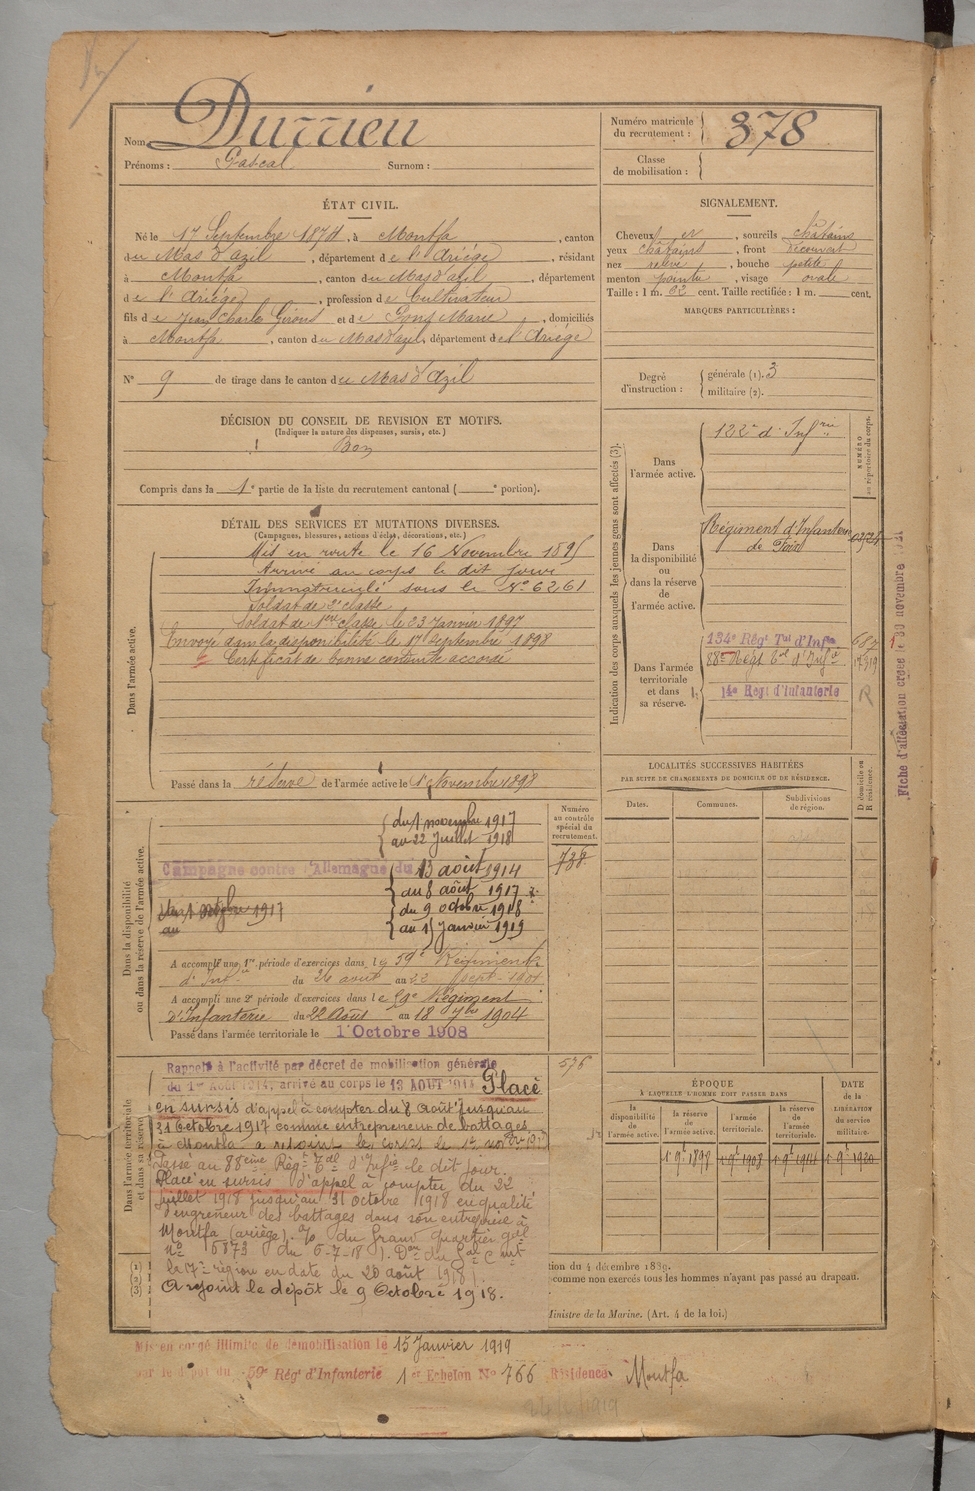 Nom Durrieu
Prénoms : Pascal Surnom :
Numéro matricule du recrutement : 378
Classe de mobilisation :
ÉTAT CIVIL.
Né le 17 Septembre 1874, à Montfa, canton
du Mas d'azil, département de l'Ariége, résidant
à Montfa, canton du Mas d'azil, département
de l'Ariége, profession de Cultivateur
fils de Jean Charles Giroud et de Pons Marie, domiciliés
à Montfa, canton du Mas d'azil, département de l'Ariége
N° 9 de tirage dans le canton du Mas d'Azil
SIGNALEMENT.
Cheveux et, sourcils châtains
yeux châtains, front découvert
nez, bouche petite
menton pointu, visage ovale
Taille : 1 m. 62 cent. Taille rectifiée : 1 m. cent.
MARQUES PARTICULIÈRES :
Degré d'instruction : générale (1). 3
militaire (2).
DÉCISION DU CONSEIL DE REVISION ET MOTIFS.
(Indiquer la nature des dispenses, sursis, etc.)
Bon
Compris dans la 1e partie de la liste du recrutement cantonal ( e portion).
DÉTAIL DES SERVICES ET MUTATIONS DIVERSES.
(Campagnes, blessures, actions d'éclat, décorations, etc.)
Dans l'armée active.
Mis en route le 16 Novembre 1895
Arrivé au corps le dit jour
Immatriculé sous le N° 6261
Soldat de 2e classe
Soldat de 1ere classe le 23 Janvier 1897
Envoyé dans la disponibilité le 17 Septembre 1898
Certificat de bonne conduite accordé
Passé dans la réserve de l'armée active le 1er Novembre 1898
Indication des corps auxquels les jeunes gens sont affectés (3).
NUMÉRO au répertoire du corps.
Dans l'armée active.
122e d'Infrie
Dans la disponibilité ou dans la réserve de l'armée active.
Régiment d'Infanterie
de Foix
Dans l'armée territoriale et dans sa réserve.
134e Régt Tal d'Infie 687
88e Régt Tal d'Infie 17319
14e Regt d'Infanterie R
Fiche d'affectation créée le 30 novembre 1921
LOCALITÉS SUCCESSIVES HABITÉES
PAR SUITE DE CHANGEMENTS DE DOMICILE OU DE RÉSIDENCE.
Dates. Communes. Subdivisions de région. D domicile ou R résidence.
Dans la disponibilité ou dans la réserve de l'armée active.
Numéro au contrôle spécial du recrutement.
738
du 1 novembre 1917
au 22 Juillet 1918
Campagne contre l'Allemagne du 13 août 1914
du 8 août 1917
du 9 octobre 1918
au 15 Janvier 1919
A accompli une 1re période d'exercices dans le 59e Régiment
d'Infie du 26 août au 22 Sept. 1901
A accompli une 2e période d'exercices dans le 59e Régiment
d'Infanterie du 22 Août au 18 7bre 1904
Passé dans l'armée territoriale le 1 Octobre 1908
Dans l'armée territoriale et dans sa réserve
576
Rappelé à l'activité par décret de mobilisation générale
du 1er Août 1914, arrivé au corps le 13 AOUT 1914 Placé
en sursis d'appel à compter du 8 Août jusqu'au
31 Octobre 1917 comme entrepreneur de battages
à Montfa a rejoint le corps le 1er novbre 1917
Passé au 88eme Régt Tal d'Infie le dit jour.
Placé en sursis d'appel à compter du 22
juillet 1918 jusqu'au 31 octobre 1918 en qualité
d'engreneur des battages dans son entreprise à
Montfa (ariége). du Grand quartier gal
No 15873 du 6-7-18). Don du Gal Cmt
la 17e région en date du 20 août 1918).
A rejoint le dépôt le 9 Octobre 1918.
ÉPOQUE
À LAQUELLE L'HOMME DOIT PASSER DANS
DATE de la LIBÉRATION du service militaire.
la disponibilité de l'armée active. la réserve de l'armée active. l'armée territoriale. la réserve de l'armée territoriale.
(1)
(2)
(3)
tion du 4 décembre 1889.
comme non exercés tous les hommes n'ayant pas passé au drapeau.
Ministre de la Marine. (Art. 4 de la loi.)
Mis en congé illimité de démobilisation le 15 Janvier 1919
par le dépôt du 59e Régt d'Infanterie 1er Echelon No 766 Résidence Montfa